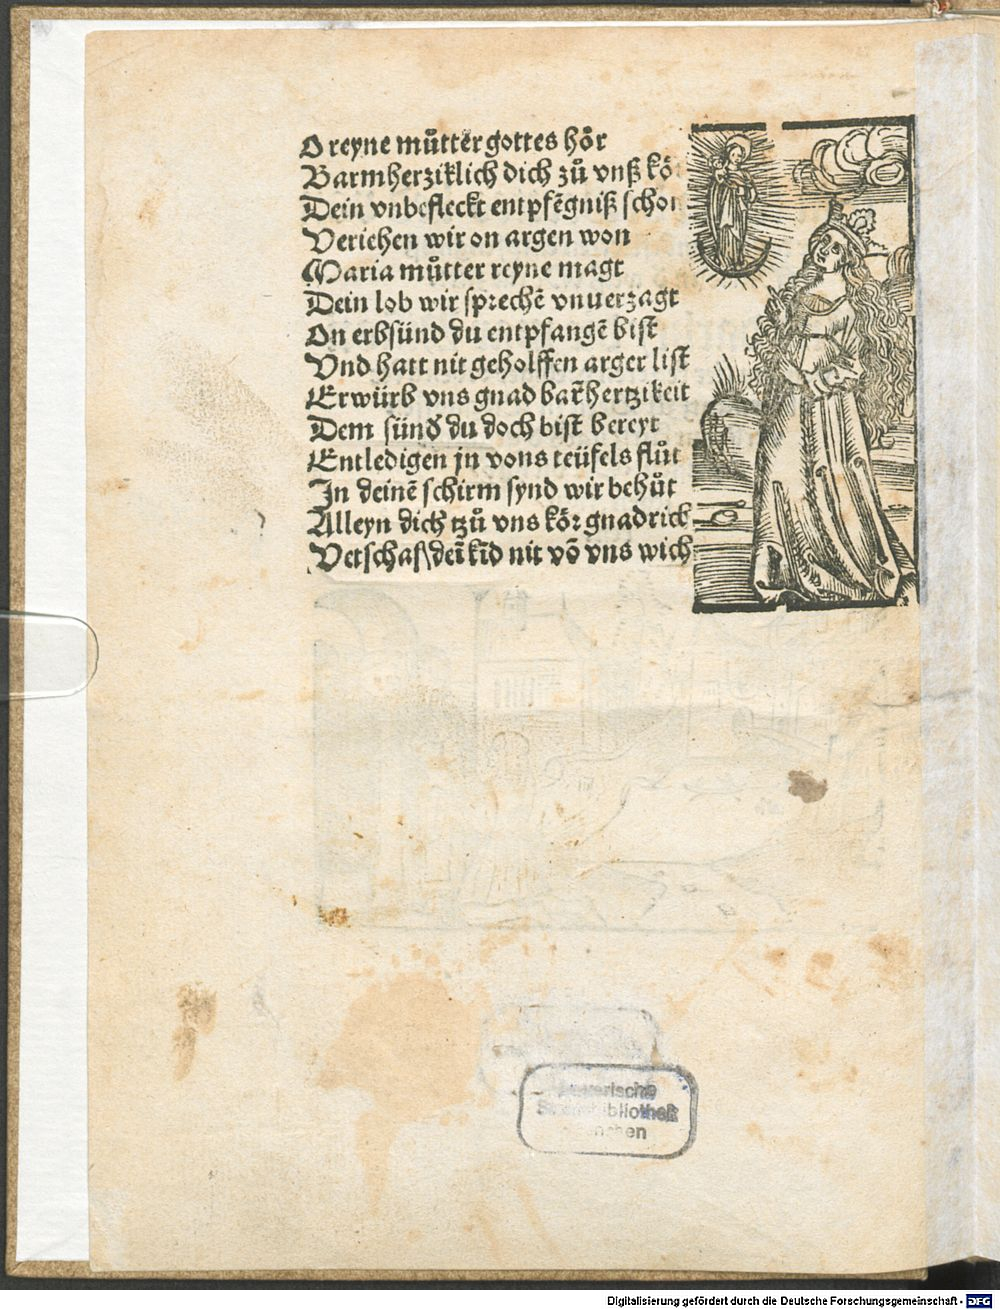 O reyne můtter gottes hör
Barmherziklich dich zů vnß kö
Dein vnbefleckt entpfēgniß schon
Veriehen wir on argen won
Maria můtter reyne magt
Dein lob wir sprechē vnuerzagt
On erbsünd du entpfangē bist
Vnd hatt nit geholffen arger list
Erwürb vns gnad bar̄hertzikeit
Dem sünd̕ du doch bist bereyt
Entledigen jn vons teüfels flůt
In deinē schirm synd wir behůt
Alleyn dich tzů vns kör gnadrich
Vetschaf dei kīd nit vō vns wich
Bayerische
Staatsbibliothek
München
Digitalisierung gefördert durch die Deutsche Forschungsgemeinschaft - DFG